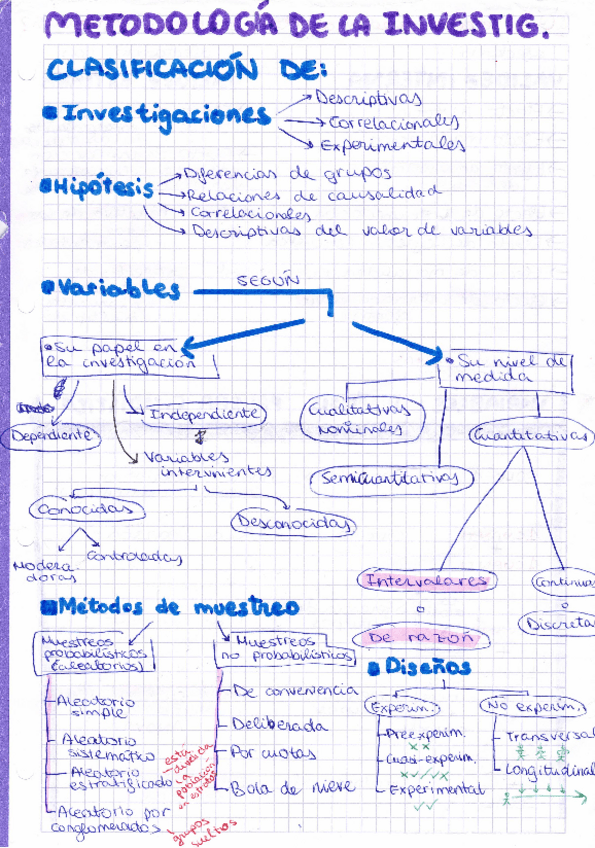 METODOLOGÍA DE LA INVESTIG.
CLASIFICACIÓN DE:
Investigaciones
Descriptivas
Correlacionales
Experimentales
Hipótesis
Diferencias de grupos
Relaciones de causalidad
Correlacionales
Descriptivas del valor de variables
Variables
SEGÚN
• Su papel en
la investigación
• Su nivel de
medida
Dependiente
Independiente
Variables
intervinientes
Cualitativas
nominales
Semicuantitativas
Cuantitativas
Conocidas
Desconocidas
Modera
doras
Controladas
Intervalares
o
De razón
Continuas
o
Discreta
Métodos de muestreo
Muestreos
probabilísticos
(aleatorios)
Aleatorio
simple
Aleatorio
sistemático
Aleatorio
estratificado
está
dividida
la
población
en estratos
Aleatorio por
conglomerados
grupos
sueltos
Muestreos
no probabilísticos
De conveniencia
Deliberada
Por cuotas
Bola de nieve
Diseños
Experim.
Preexperim.
Cuasi-experim.
Experimental
No experim.
Transversal
Longitudinal